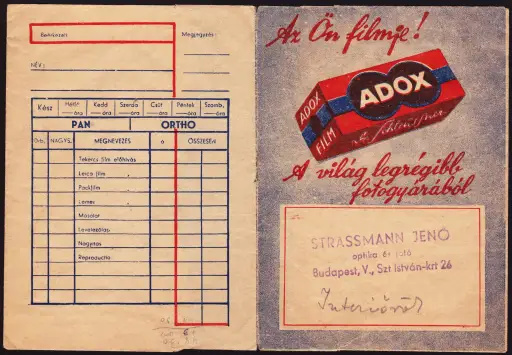 Beérkezett
Megjegyzés:
NÉV:
Kész
Hétfő
Kedd
Szerda
Csüt
Péntek
Szomb.
óra
óra
óra
óra
óra
óra
PAN
ORTHO
Drb.
NAGYS.
MEGNEVEZÉS
á
ÖSSZESEN
Tekercs film előhívás
Leica film
Packfilm
Lemez
Másolat
Levelezőlap
Nagyítás
Reproductio
Az Ön filmje!
ADOX
ADOX
FILM
A világ legrégibb
fotógyárából
STRASSMANN JENŐ
optika és fotó
Budapest, V., Szt István-krt 26
Interiőröl